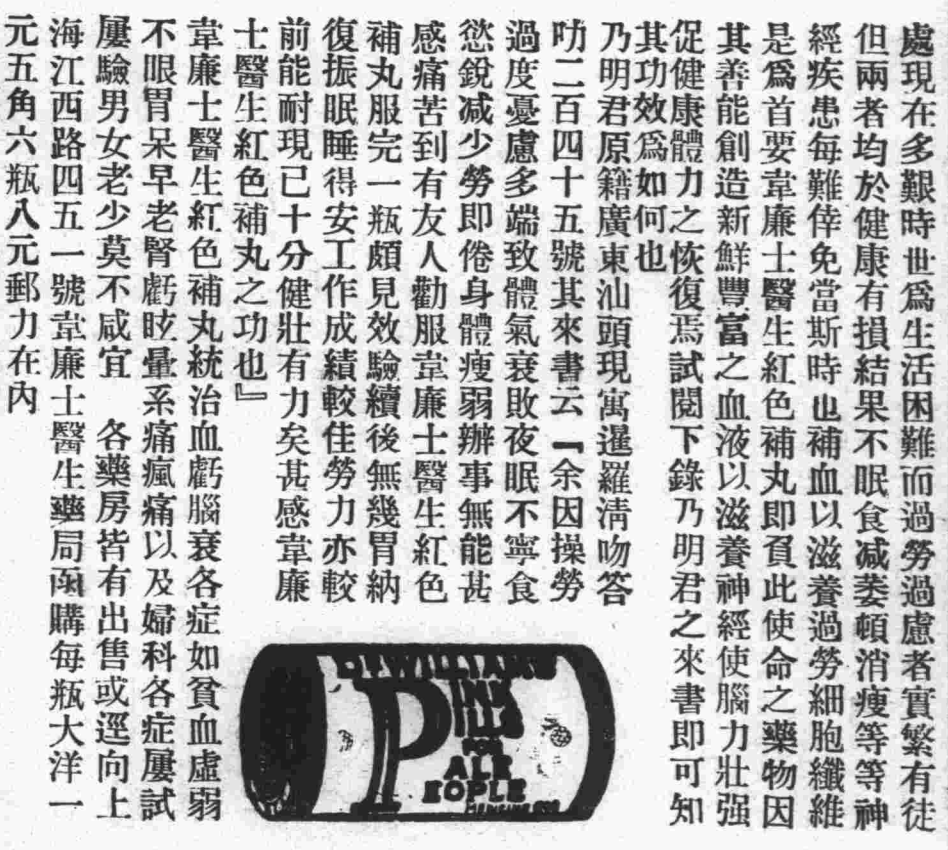 處現在多艱時世爲生活困難而過勞過慮者實繁有徒
但兩者均於健康有損結果不眠食减萎頓消瘦等等神
經疾患每難倖免當斯時也補血以滋養過勞細胞纖維
是爲首要韋廉士醫生紅色補丸即負此使命之藥物因
其善能創造新鮮豐富之血液以滋養神經使腦力壯强
促健康體力之恢復焉試閱下錄乃明君之來書即可知
其功效爲如何也
乃明君原籍廣東汕頭現寓暹羅淸吻答
叻二百四十五號其來書云『余因操勞
過度憂慮多端致體氣衰敗夜眠不寧食
慾銳减少勞即倦身體瘦弱辦事無能甚
感痛苦到有友人勸服韋廉士醫生紅色
補丸服完一瓶頗見效驗續後無幾胃納
復振眠睡得安工作成績較佳勞力亦較
前能耐現已十分健壯有力矣甚感韋廉
士醫生紅色補丸之功也』
韋廉士醫生紅色補丸統治血虧腦衰各症如貧血虛弱
不眠胃呆早老腎虧眩暈系痛瘋痛以及婦科各症屢試
屢驗男女老少莫不咸宜 各藥房皆有出售或逕向上
海江西路四五一號韋廉士醫生藥局函購每瓶大洋一
元五角六瓶八元郵力在內
DR WILLIAMS
PINK
PILLS
FOR
PALE
PEOPLE